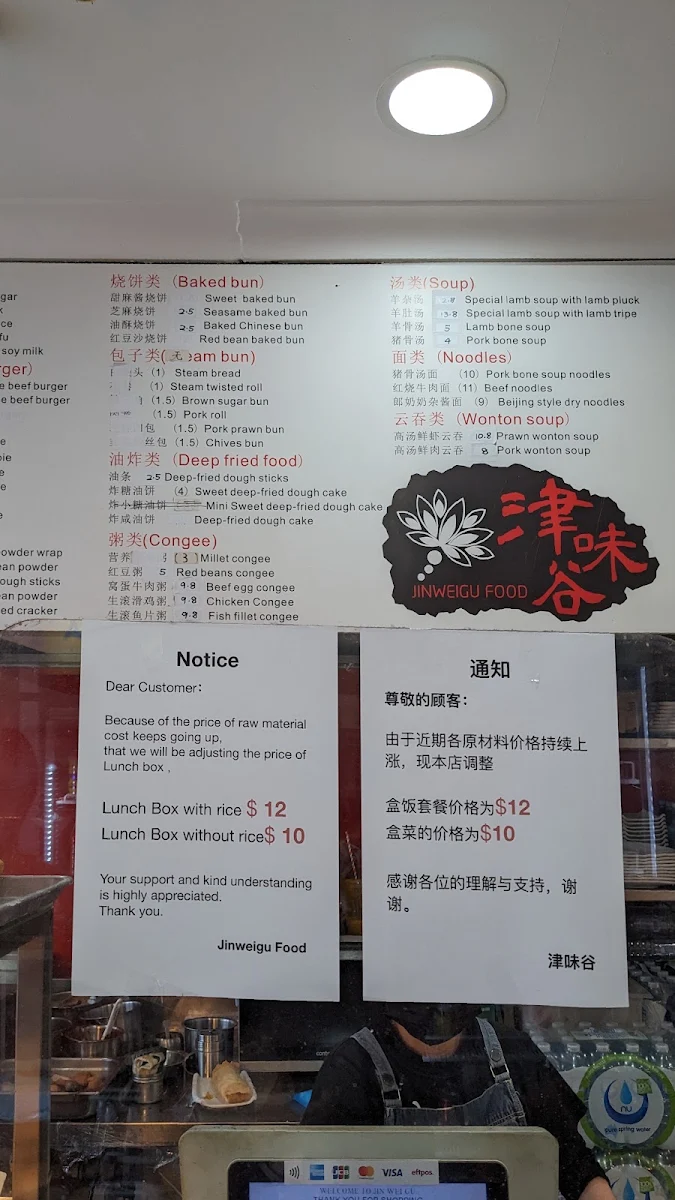 gar
k
ce
fu
soy milk
rger)
e beef burger
e beef burger
e
ie
e
e
owder wrap
ean powder
ough sticks
ean powder
ed cracker
烧饼类 (Baked bun)
甜麻酱烧饼 Sweet baked bun
芝麻烧饼 2.5 Seasame baked bun
油酥烧饼 2.5 Baked Chinese bun
红豆沙烧饼 Red bean baked bun
包子类( eam bun)
头 (1) Steam bread
(1) Steam twisted roll
(1.5) Brown sugar bun
(1.5) Pork roll
包 (1.5) Pork prawn bun
丝包 (1.5) Chives bun
油炸类 (Deep fried food)
油条 2.5 Deep-fried dough sticks
炸糖油饼 (4) Sweet deep-fried dough cake
炸小糖油饼 Mini Sweet deep-fried dough cake
炸咸油饼 Deep-fried dough cake
粥类(Congee)
营养 (3) Millet congee
红豆粥 5 Red beans congee
窝蛋牛肉粥 9.8 Beef egg congee
生滚滑鸡粥 9.8 Chicken Congee
生滚鱼片粥 9.8 Fish fillet congee
汤类(Soup)
羊杂汤 Special lamb soup with lamb pluck
羊肚汤 13.8 Special lamb soup with lamb tripe
羊骨汤 5 Lamb bone soup
猪骨汤 4 Pork bone soup
面类 (Noodles)
猪骨汤面 (10) Pork bone soup noodles
红烧牛肉面 (11) Beef noodles
郎奶奶杂酱面 (9) Beijing style dry noodles
云吞类 (Wonton soup)
高汤鲜虾云吞 10.8 Prawn wonton soup
高汤鲜肉云吞 8 Pork wonton soup
津味谷
JINWEIGU FOOD
Notice
Dear Customer:
Because of the price of raw material
cost keeps going up,
that we will be adjusting the price of
Lunch box ,
Lunch Box with rice $ 12
Lunch Box without rice$ 10
Your support and kind understanding
is highly appreciated.
Thank you.
Jinweigu Food
通知
尊敬的顾客：
由于近期各原材料价格持续上
涨，现本店调整
盒饭套餐价格为$12
盒菜的价格为$10
感谢各位的理解与支持，谢
谢。
津味谷
JCB
VISA
eftpos
WELCOME TO JIN WEI GU
THANK YOU FOR SHOPPING
nu
pure spring water